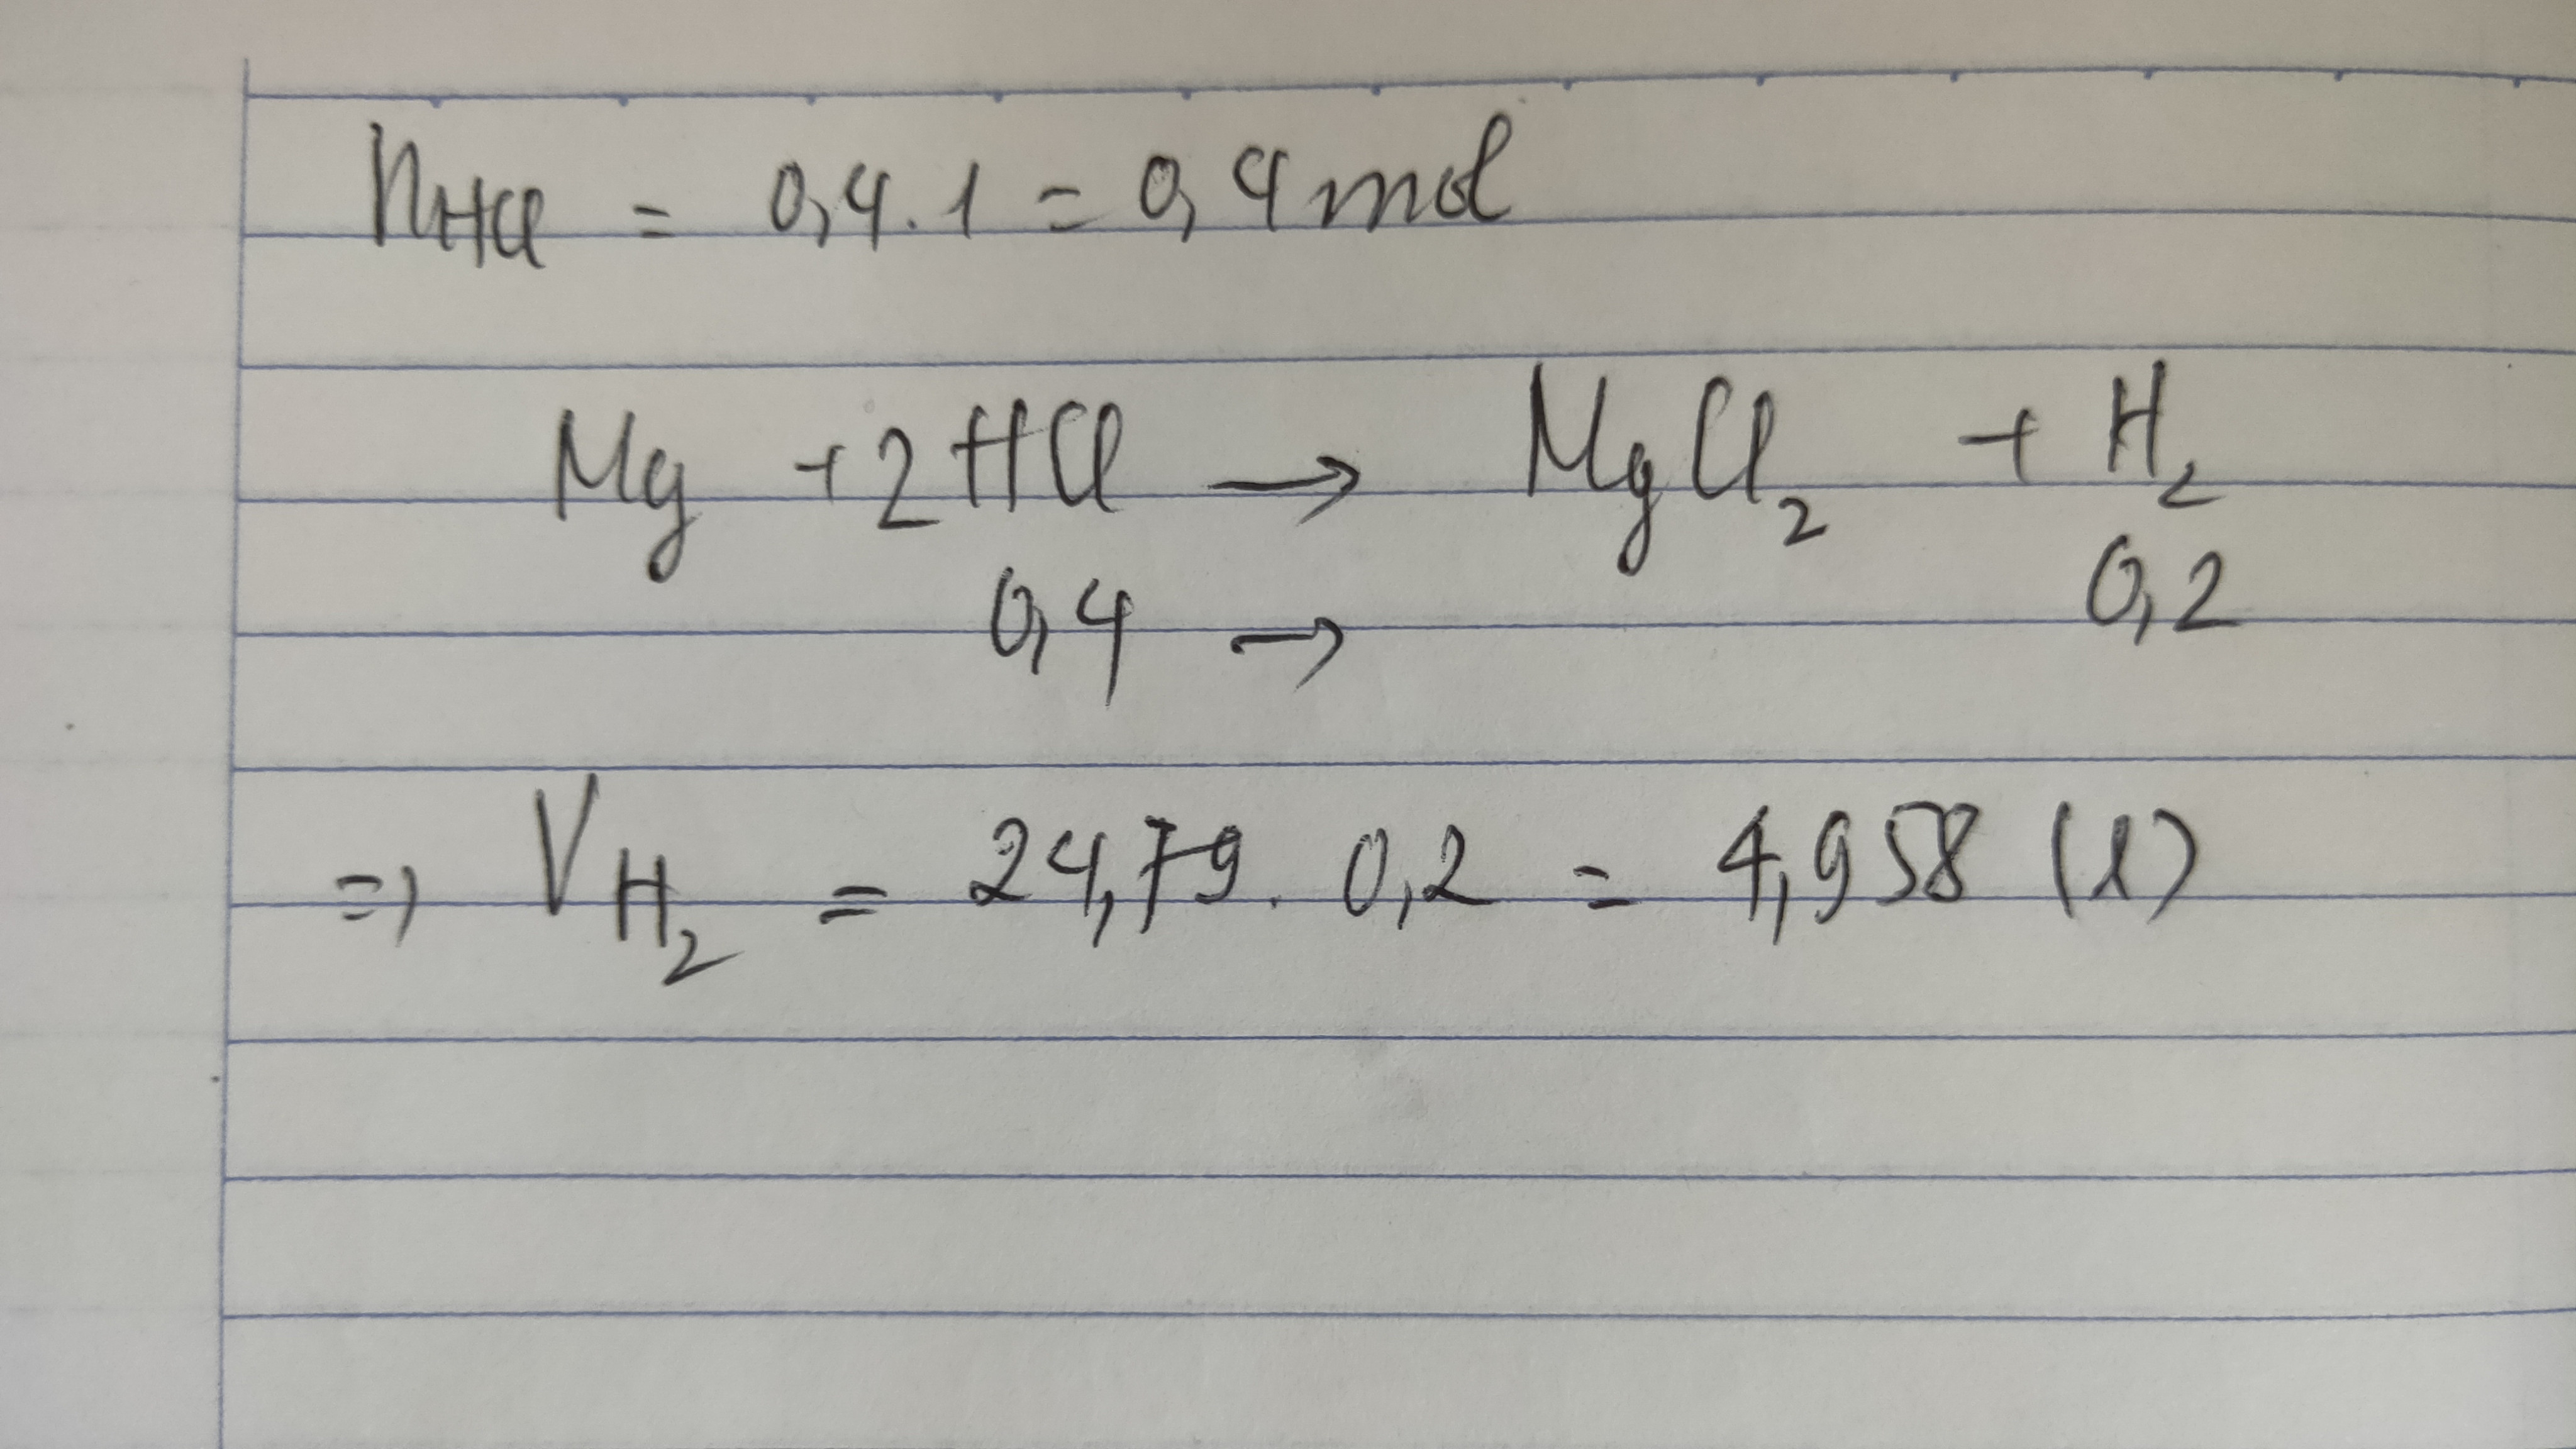 nHCl = 0,4.1 = 0,4 mol
Mg + 2HCl → MgCl₂ + H₂
0,4 → 0,2
=> VH₂ = 24,79. 0,2 = 4,958 (l)